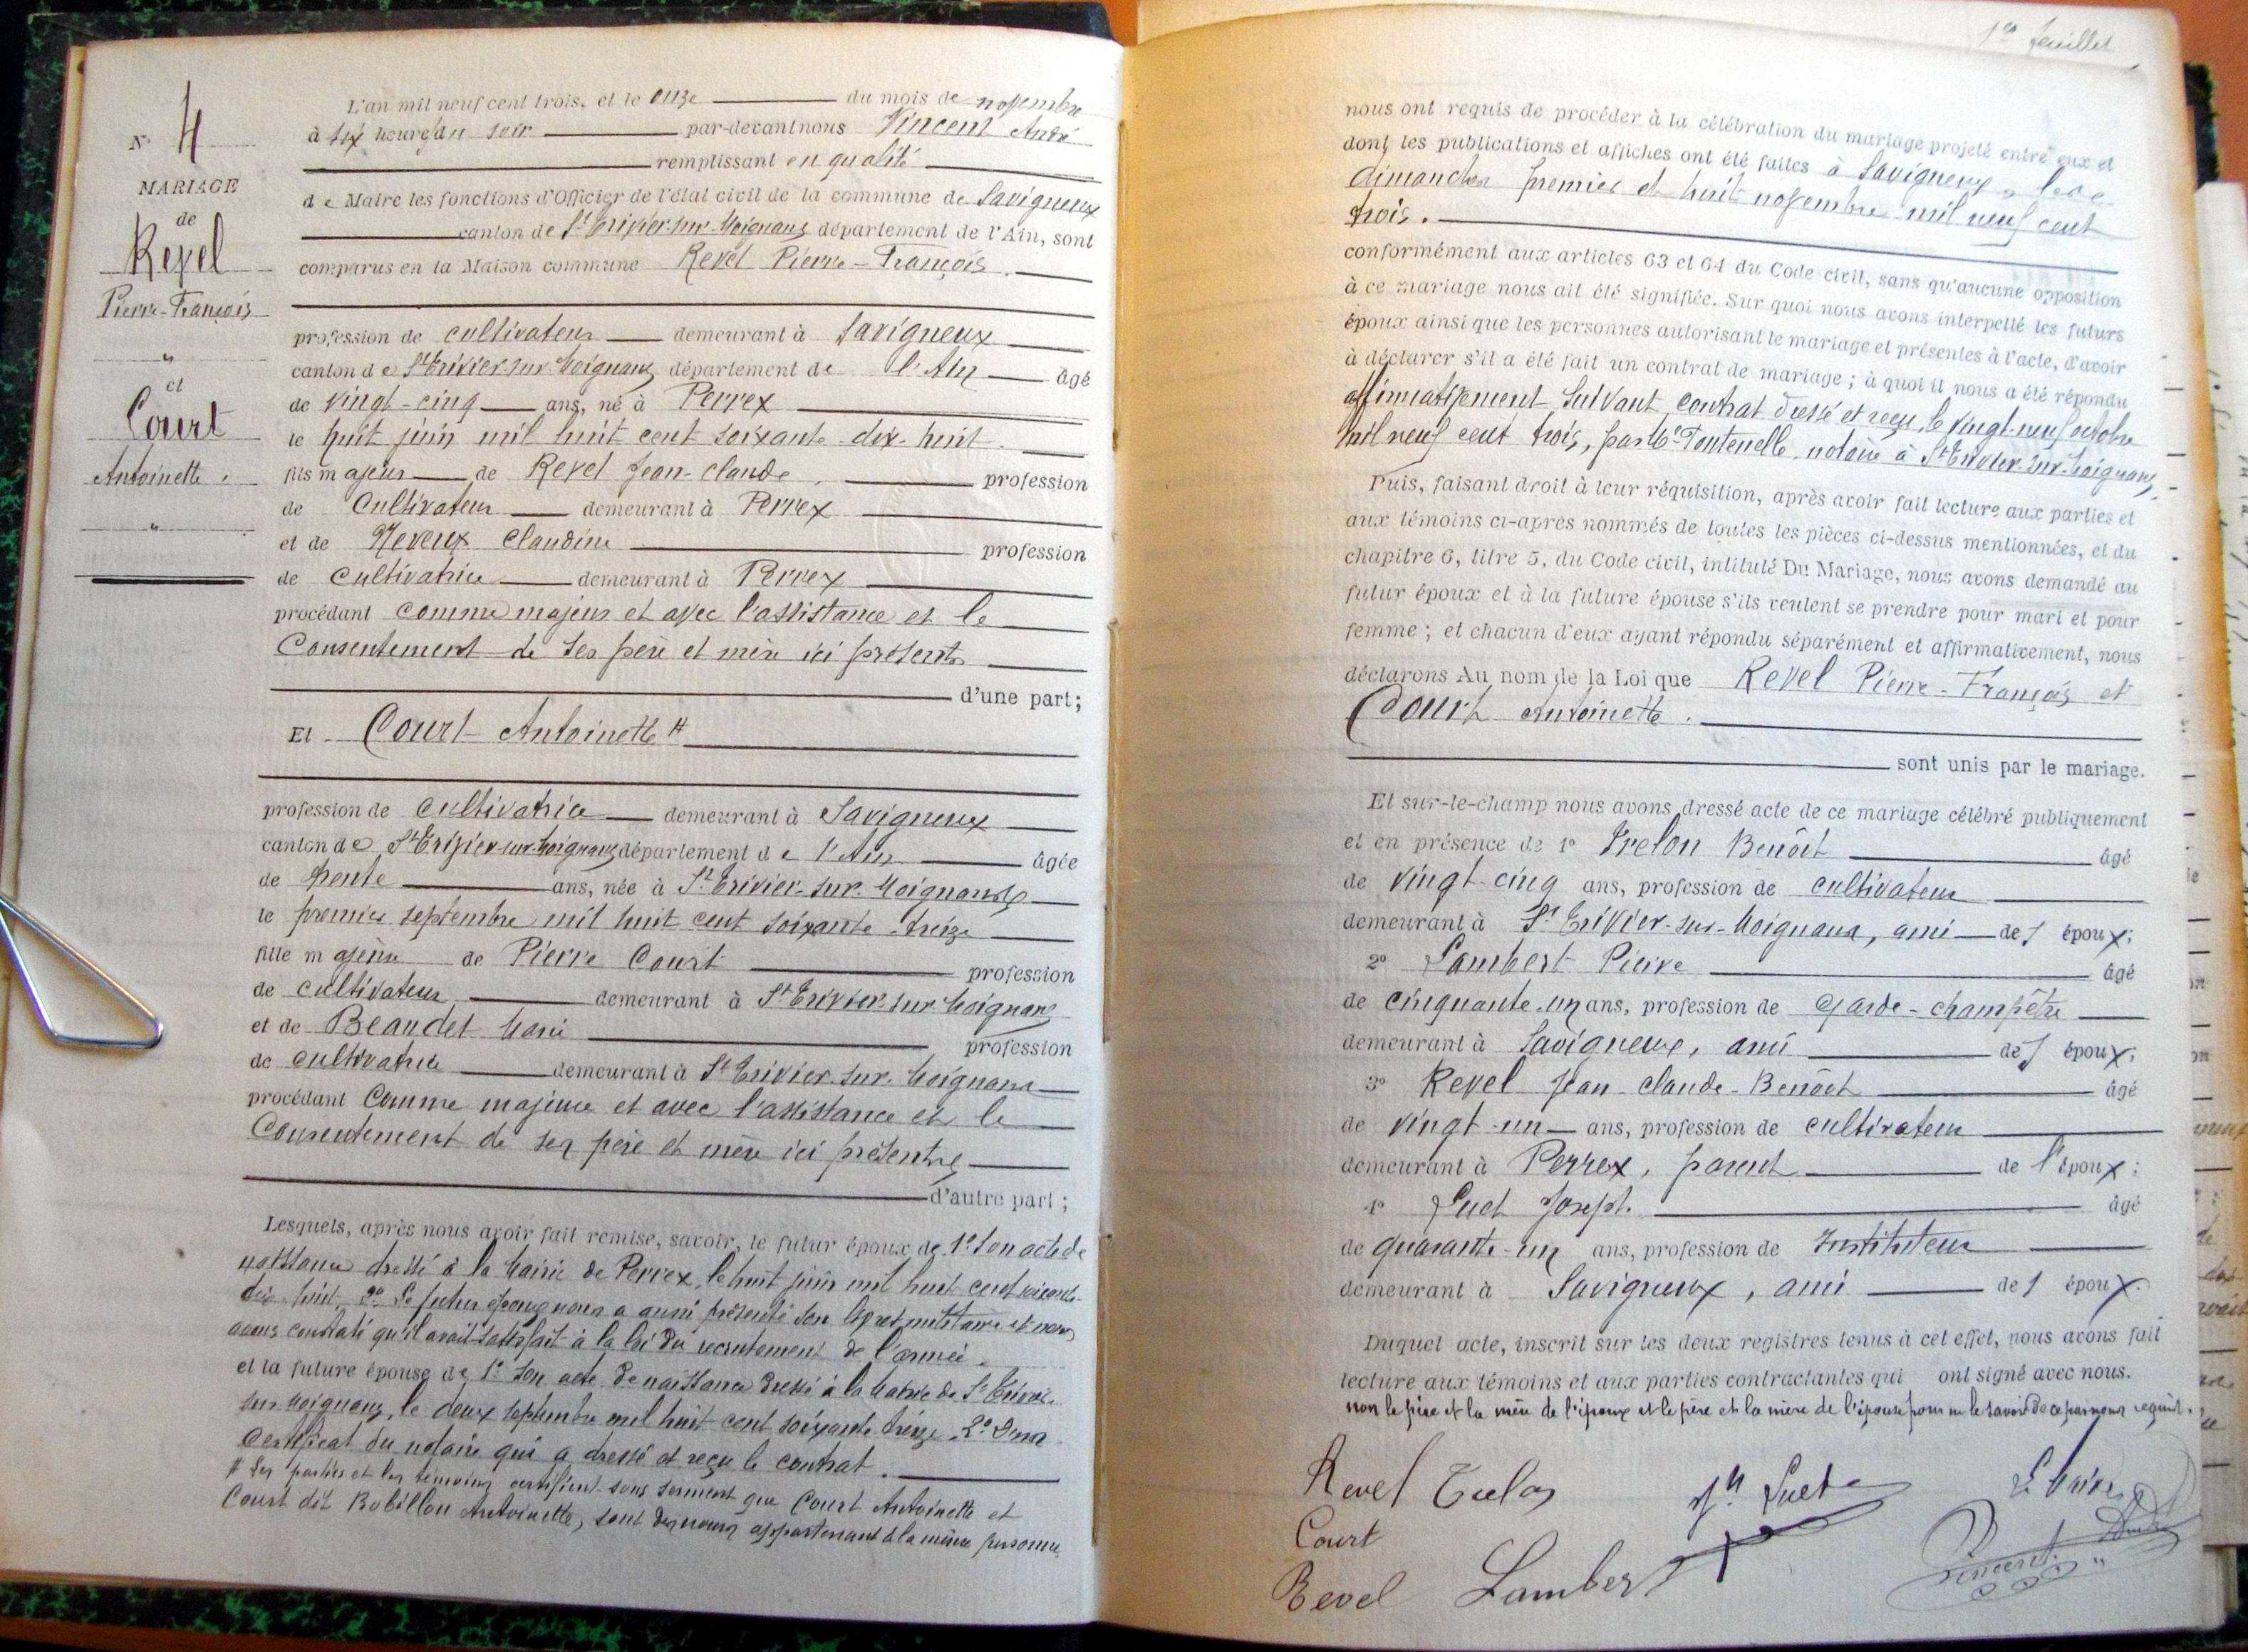 N° 4
MARIAGE
de
Revel
Pierre-François
"
et
Court
Antoinette
"
L'an mil neuf cent trois, et le onze du mois de novembre
à six heures du soir par-devant nous Vincent André
remplissant en qualité
de Maire les fonctions d'Officier de l'état civil de la commune de Savigneux
canton de St Trivier-sur-Moignans département de l'Ain, sont
comparus en la Maison commune Revel Pierre-François
profession de cultivateur demeurant à Savigneux
canton de St Trivier-sur-Moignans département de l'Ain âgé
de vingt-cinq ans, né à Perrex
le huit juin mil huit cent soixante-dix-huit.
fils majeur de Revel Jean-Claude, profession
de Cultivateur demeurant à Perrex
et de Neveux Claudine profession
de cultivatrice demeurant à Perrex
procédant comme majeur et avec l'assistance et le
Consentement de ses père et mère ici présents
d'une part;
Et Court Antoinette #
profession de cultivatrice demeurant à Savigneux
canton de St Trivier-sur-Moignans département de l'Ain âgée
de trente ans, née à St Trivier-sur-Moignans
le premier septembre mil huit cent soixante-treize
fille majeure de Pierre Court profession
de cultivateur demeurant à St Trivier-sur-Moignans
et de Beaudet Marie profession
de cultivatrice demeurant à St Trivier-sur-Moignans
procédant Comme majeure et avec l'assistance et le
Consentement de ses père et mère ici présents
d'autre part;
Lesquels, après nous avoir fait remise, savoir, le futur époux de 1° Son acte de
naissance dressé à la Mairie de Perrex, le huit juin mil huit cent soixante-
dix-huit. 2° Le futur époux nous a aussi présenté son livret militaire et nous
avons constaté qu'il avait satisfait à la loi du recrutement de l'armée.
et la future épouse de 1° Son acte de naissance dressé à la Mairie de St Trivier-
sur-Moignans, le deux septembre mil huit cent soixante-treize. 2° D'un
Certificat du notaire qui a dressé et reçu le contrat.
# Les parties et les témoins certifient sous serment que Court Antoinette et
Court dit Bobillon Antoinette, sont des noms appartenant à la même personne.
1er feuillet
nous ont requis de procéder à la célébration du mariage projeté entre eux et
dont les publications et affiches ont été faites à Savigneux, les
dimanches premier et huit novembre mil neuf cent
trois.
conformément aux articles 63 et 64 du Code civil, sans qu'aucune opposition
à ce mariage nous ait été signifiée. Sur quoi nous avons interpellé les futurs
époux ainsi que les personnes autorisant le mariage et présentes à l'acte, d'avoir
à déclarer s'il a été fait un contrat de mariage; à quoi il nous a été répondu
affirmativement suivant contrat dressé et reçu, le vingt-neuf octobre
mil neuf cent trois, par Me Fontenelle, notaire à St Trivier-sur-Moignans,
Puis, faisant droit à leur réquisition, après avoir fait lecture aux parties et
aux témoins ci-après nommés de toutes les pièces ci-dessus mentionnées, et du
chapitre 6, titre 5, du Code civil, intitulé Du Mariage, nous avons demandé au
futur époux et à la future épouse s'ils veulent se prendre pour mari et pour
femme; et chacun d'eux ayant répondu séparément et affirmativement, nous
déclarons Au nom de la Loi que Revel Pierre-François et
Court Antoinette.
sont unis par le mariage.
Et sur-le-champ nous avons dressé acte de ce mariage célébré publiquement
et en présence de 1° Trelon Benoît âgé
de vingt-cinq ans, profession de cultivateur
demeurant à St Trivier-sur-Moignans, ami des époux;
2° Lambert Pierre âgé
de cinquante-un ans, profession de Garde-champêtre
demeurant à Savigneux, ami des époux;
3° Revel Jean-Claude-Benoît âgé
de vingt-un ans, profession de cultivateur
demeurant à Perrex, parent de l'époux;
4° Luct Joseph. âgé
de quarante-un ans, profession de Instituteur
demeurant à Savigneux, ami des époux.
Duquel acte, inscrit sur les deux registres tenus à cet effet, nous avons fait
lecture aux témoins et aux parties contractantes qui ont signé avec nous.
non le père et la mère de l'époux et le père et la mère de l'épouse pour ne le savoir de ce par nous requis.
Revel
Court
Lambert
Revel
Le Maire
Vincent André